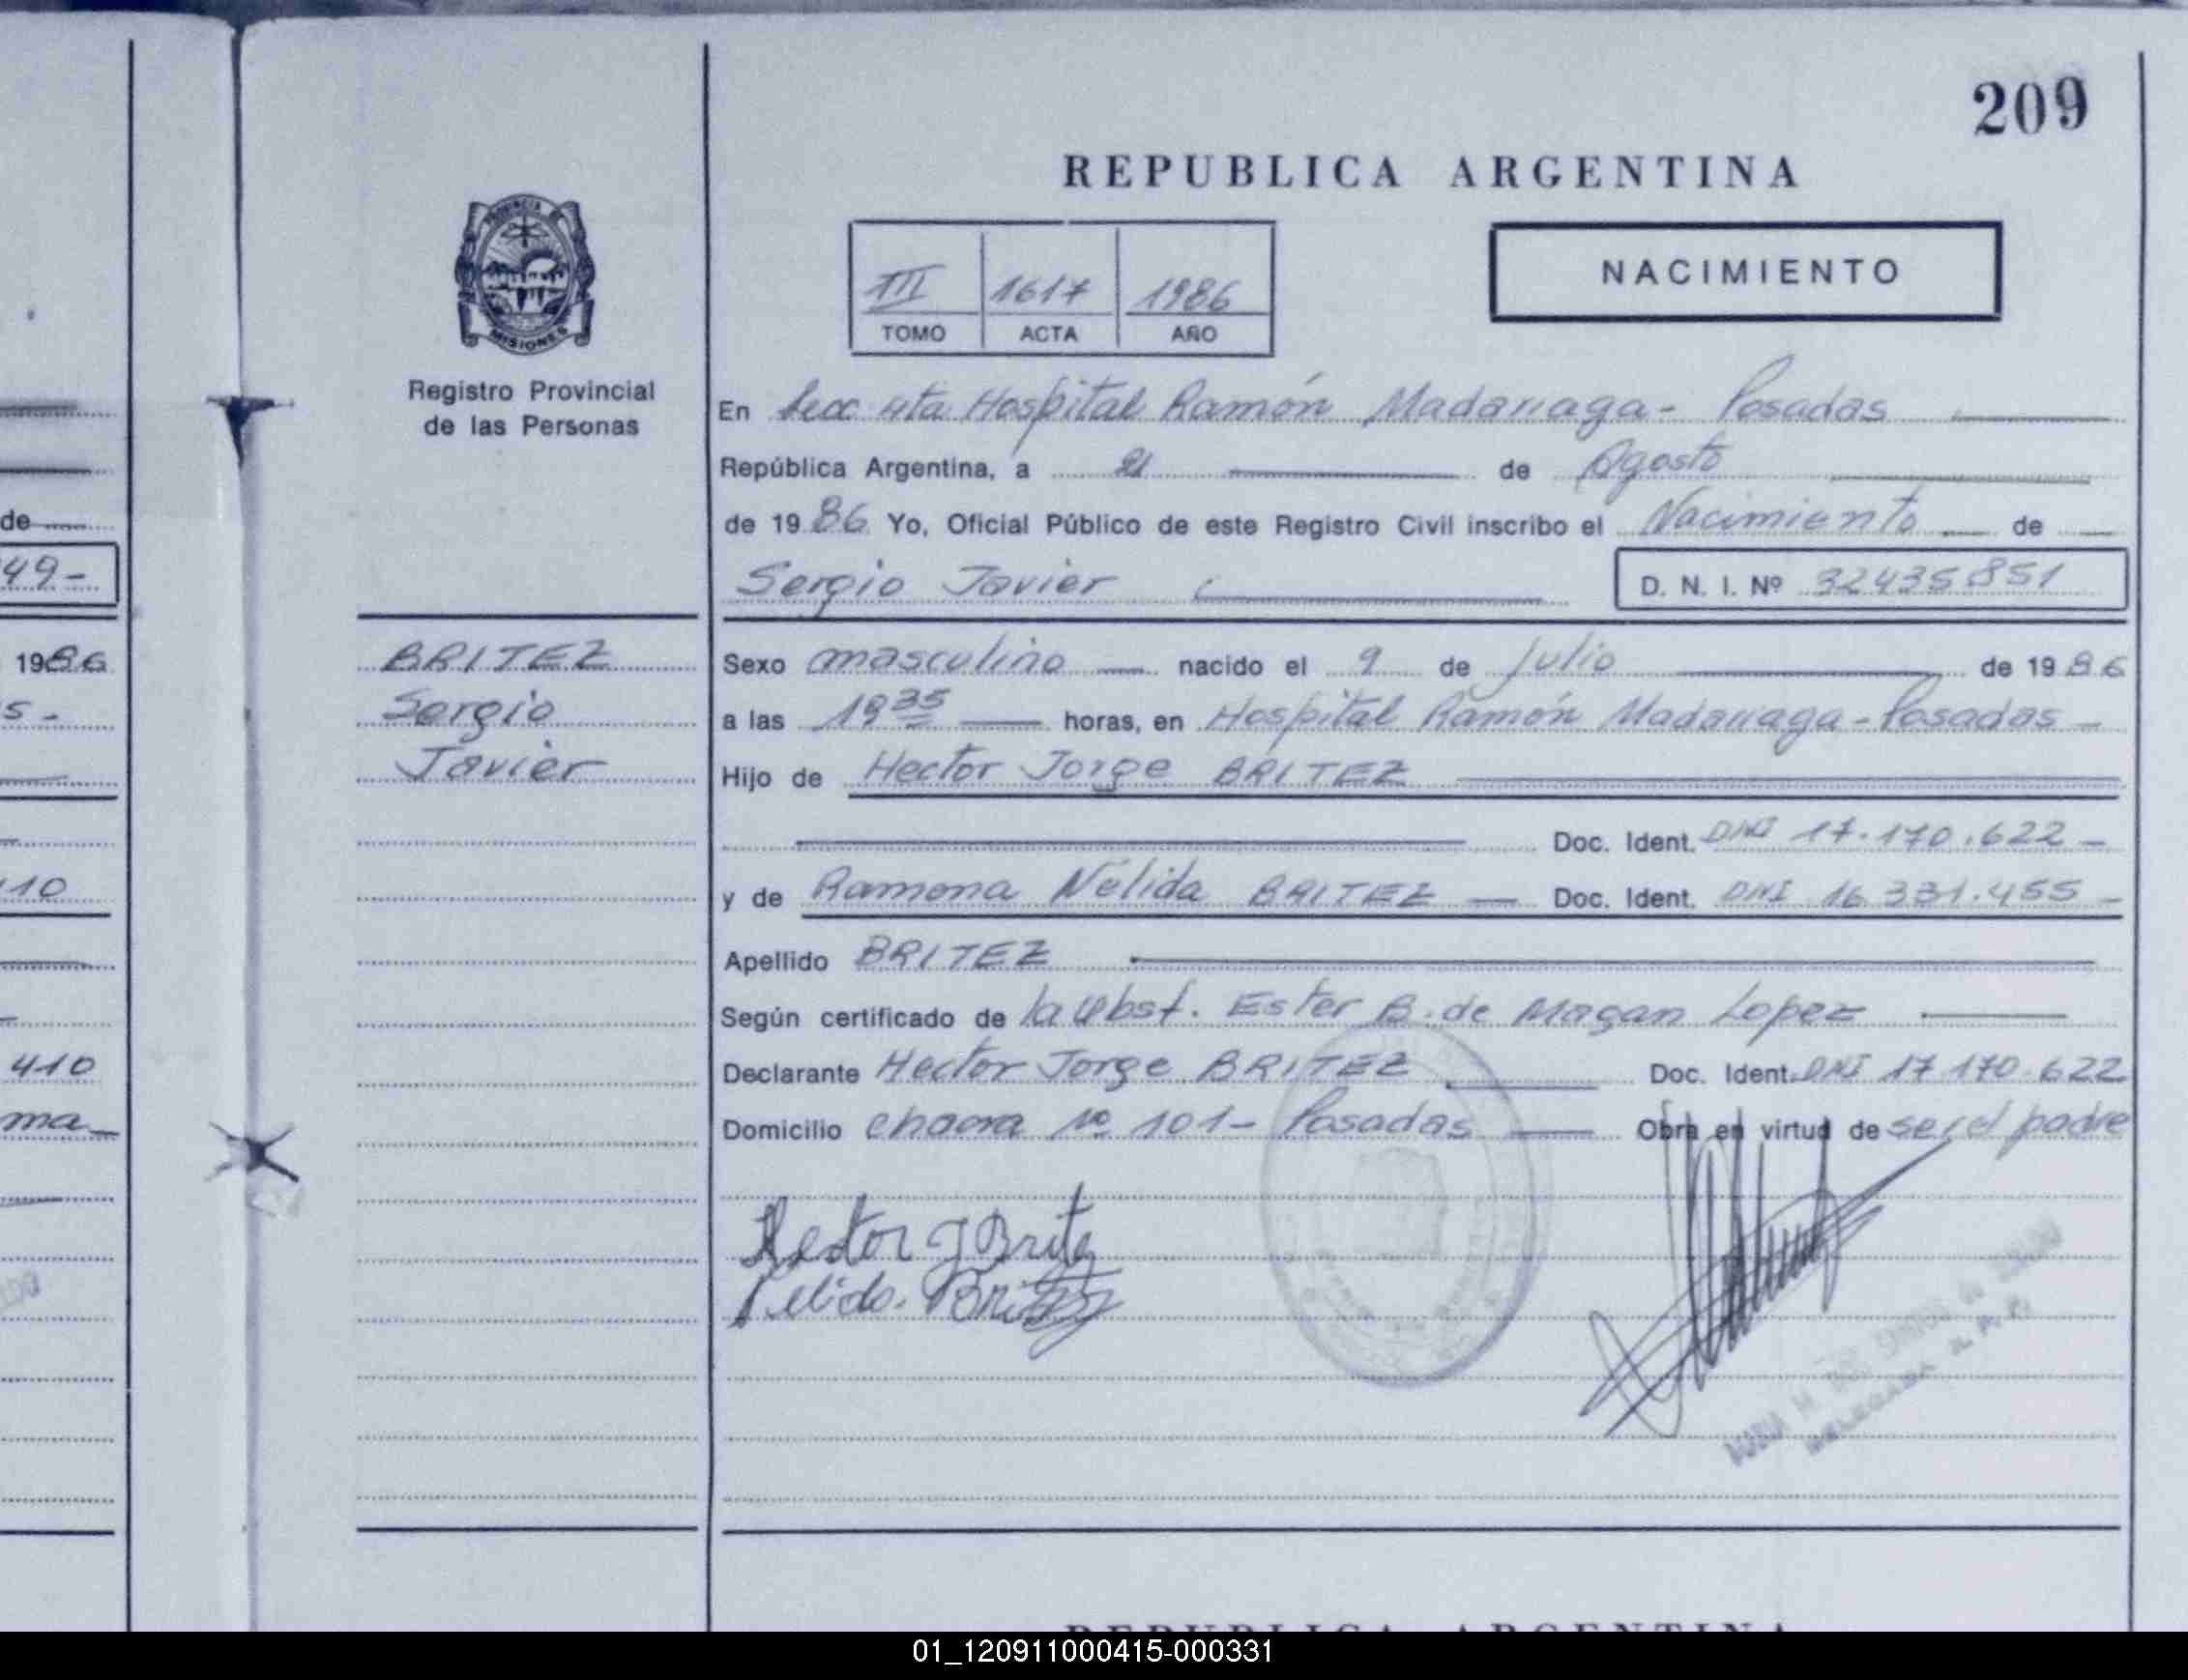 209
REPUBLICA ARGENTINA
PROVINCIA DE
MISIONES
Registro Provincial
de las Personas
III 1617 1986
TOMO ACTA AÑO
NACIMIENTO
En Secc 4ta Hospital Ramón Madariaga - Posadas
República Argentina, a 21 de Agosto
de 1986 Yo, Oficial Público de este Registro Civil inscribo el Nacimiento de
Sergio Javier
D. N. I. Nº 32435851
BRITEZ
Sergio
Javier
Sexo masculino nacido el 9 de Julio de 1986
a las 19 35 horas, en Hospital Ramón Madariaga - Posadas -
Hijo de Hector Jorge BRITEZ
Doc. Ident. DNI 17.170.622 -
y de Ramona Nélida BRITEZ Doc. Ident. DNI 16.331.455 -
Apellido BRITEZ
Según certificado de la Obst. Ester B. de Magan Lopez
Declarante Hector Jorge BRITEZ Doc. Ident. DNI 17 170 622
Domicilio chacra Nº 101 - Posadas Obra en virtud de ser el padre
Hector J Britez
Nelida. Britez
DELEGADA R. P. P.
de
49-
1986
5-
10
410
ma
REPUBLICA ARGENTINA
01_120911000415-000331